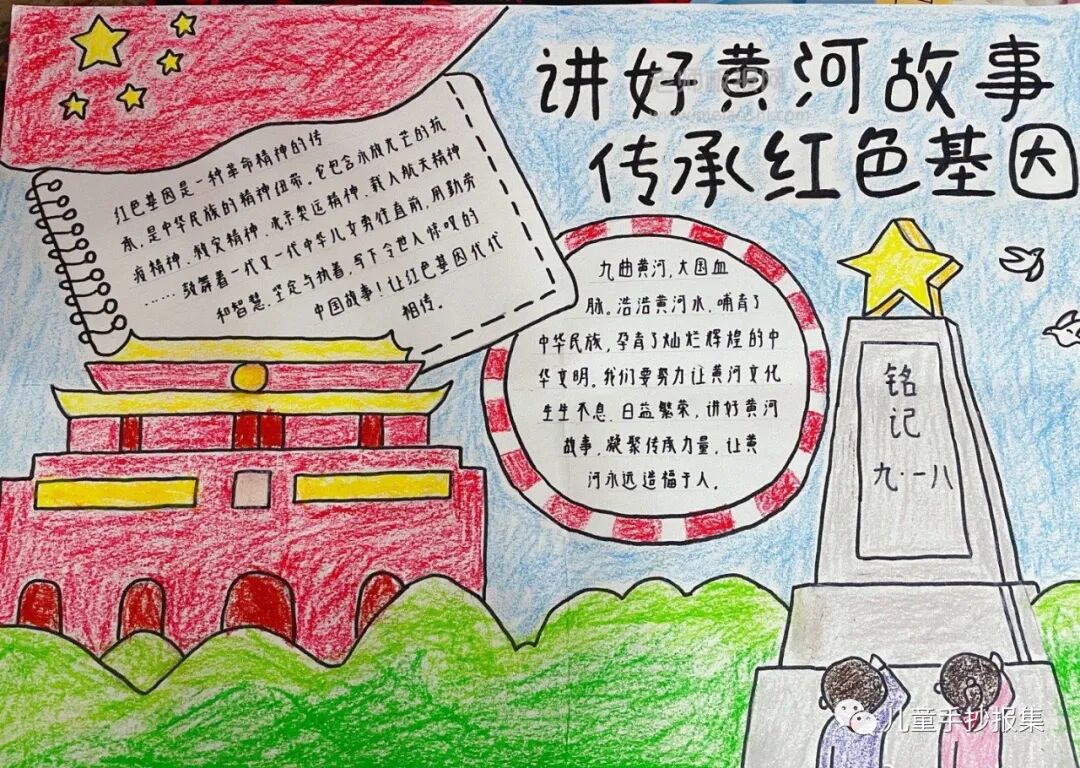 讲好黄河故事
传承红色基因
红色基因是一种革命精神的传
承,是中华民族的精神纽带。它包含永放光芒的抗
疫精神、救灾精神、北京奥运精神、载人航天精神
……鼓舞着一代又一代中华儿女勇往直前,用勤劳
和智慧、坚定与执着,写下令世人惊叹的
中国故事!让红色基因代代
相传。
九曲黄河,大国血
脉。浩浩黄河水,哺育了
中华民族,孕育了灿烂辉煌的中
华文明。我们要努力让黄河文化
生生不息、日益繁荣,讲好黄河
故事,凝聚传承力量,让黄
河永远造福于人。
铭
记
九·一八
儿童手抄报集